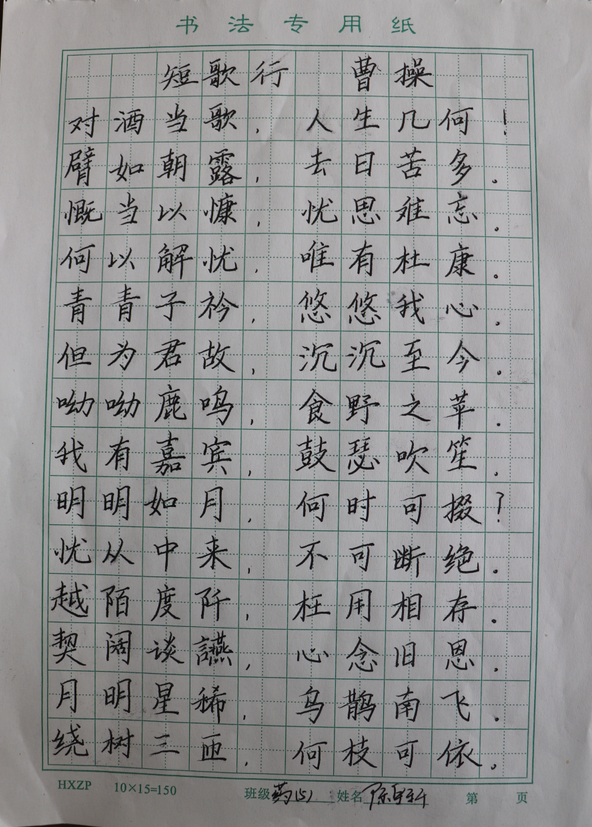 书法专用纸
短歌行 曹操
对酒当歌，人生几何！
臂如朝露，去日苦多。
慨当以慷，忧思难忘。
何以解忧，唯有杜康。
青青子衿，悠悠我心。
但为君故，沉沉至今。
呦呦鹿鸣，食野之苹。
我有嘉宾，鼓瑟吹笙。
明明如月，何时可掇？
忧从中来，不可断绝。
越陌度阡，枉用相存。
契阔谈讌，心念旧恩。
月明星稀，乌鹊南飞。
绕树三匝，何枝可依。
HXZP 10×15=150 班级 姓名 第 页